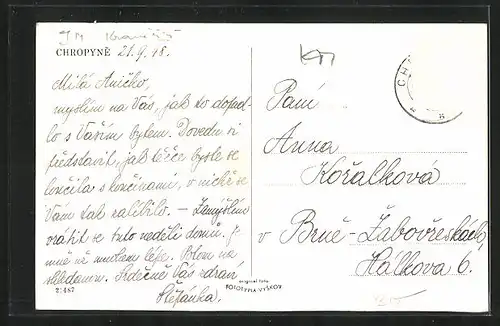 CHROPYNĚ 21.9.48.
Milá Aničko,
myslím na Vás, jak to dopad-
lo s Vaším bytem. Dovedu si
představit, jak těžce byste se
loučila s končinami, v nichž se
Vám tak zalíbilo. - Zamýšlím
vrátit se tuto neděli domů. Je
mně už mnohem lépe. Potom na
shledanou. Srdečně Vás zdraví
Štěpánka.
CH
Paní
Anna
Kořalková
v Brně-Žabovřeskách,
Hálkova 6.
original foto
FOTOTYPIA-VYŠKOV